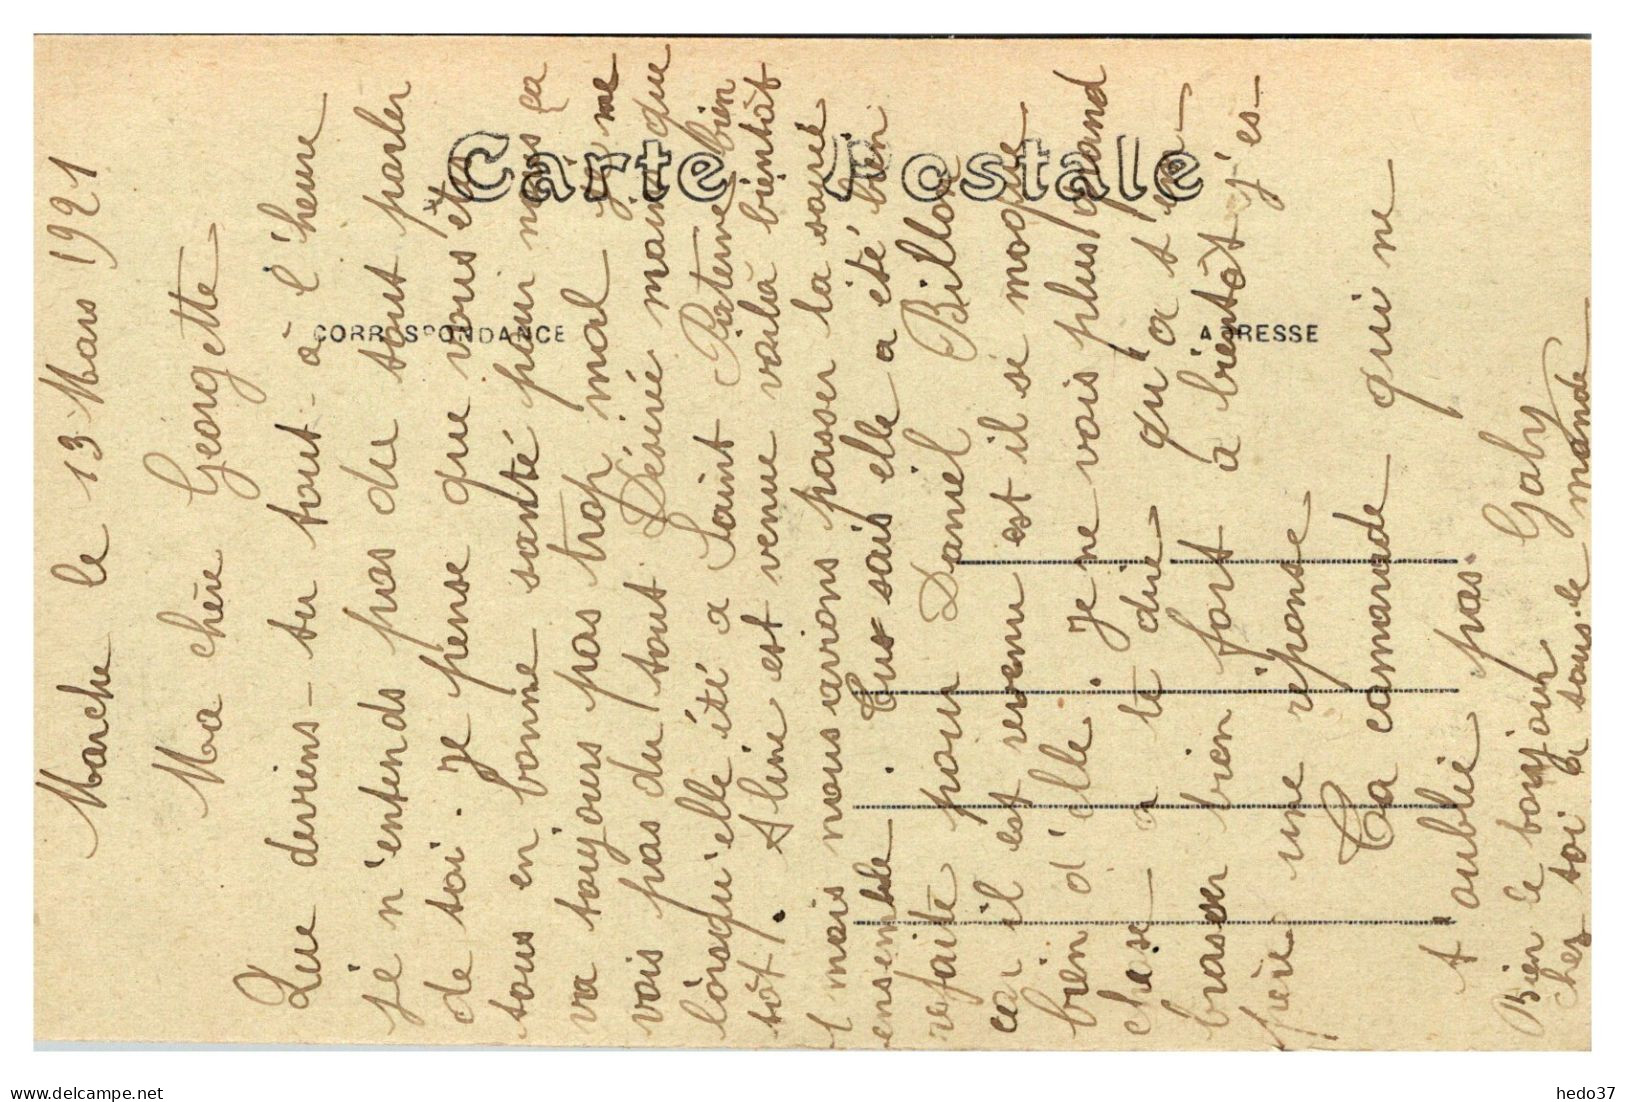 Marche le 13 Mars 1921
Ma chère Georgette
Que deviens-tu tout-à l'heure
je n'entends pas du tout parler
de toi. Je pense que vous êtes
tous en bonne santé pour nous ça
va toujours pas trop mal Je me
vois pas du tout Désirée mais que
lorsqu'elle été a Saint Paterne bien
tôt. Aline est venue voilà bientôt
1 mois nous avions passer la soirée
ensemble. Tu sais elle a été bien
refaite pour Daniel Billon
car il est revenu est il se moque
bien d'elle. Je ne vois plus grand
chose a te dire qu'a t'em-
brasser bien fort a bientôt j'es-
père une réponse
Ta camarade qui ne
t'oublie pas.
Gaby
Bien le bonjour
chez toi a tous le monde
Carte Postale
CORRESPONDANCE
ADRESSE
delcampe.net
hedo37